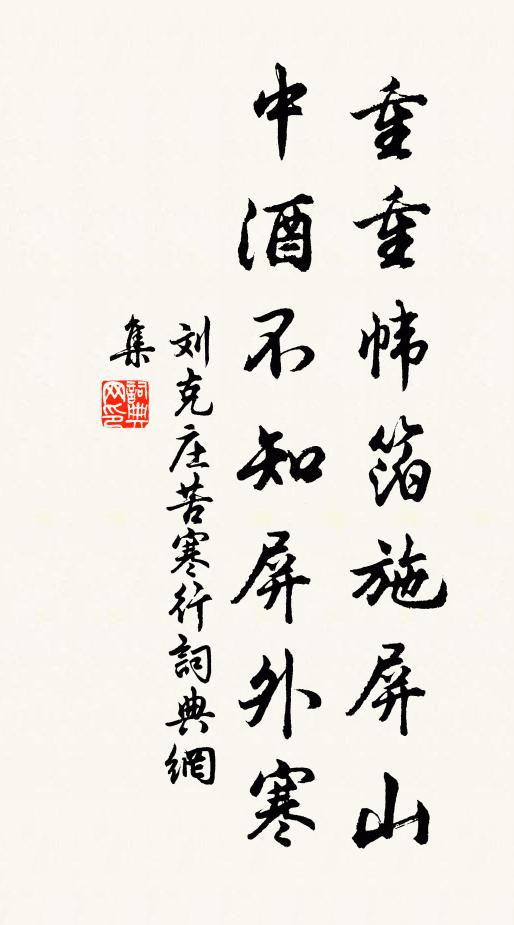 重重帏箔施屏山
中酒不知屏外寒
刘克庄苦寒行詞典網
集
詞典
网印